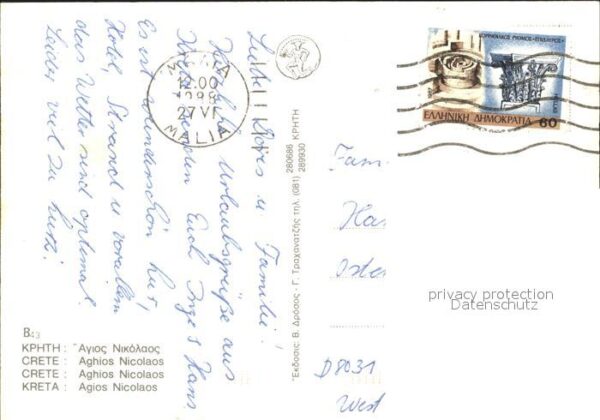 Liebe Doris u. Familie!
Herzliche Urlaubsgrüße aus
senden Euch Inge u. Hans
Es ist wunderschön hier,
Hotel, Strand u. vorallem
das Wetter sind optimal.
Leider viel zu kurz.
ΜΑΛΙΑ
12.00
1988
27 VI
MALIA
ΚΟΡΙΝΘΙΑΚΟΣ ΡΥΘΜΟΣ - ΕΠΙΔΑΥΡΟΣ
1987
HELLAS
ΕΛΛΗΝΙΚΗ ΔΗΜΟΚΡΑΤΙΑ 60
Έκδοσις: Β. Δρόσος - Γ. Τραχανατζής τηλ. (081) 280686 289930 ΚΡΗΤΗ
Fam
Ha
Oste
D 8031
West
privacy protection
Datenschutz
B43
ΚΡΗΤΗ : Ἅγιος Νικόλαος
CRETE : Aghios Nicolaos
CRETE : Aghios Nicolaos
KRETA : Agios Nicolaos